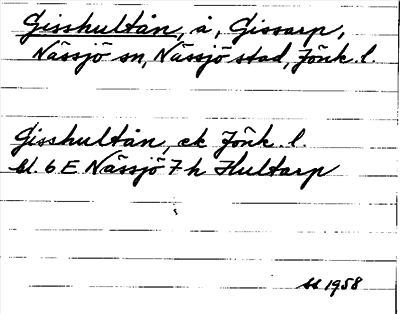 Gisshultån, å, Gissarp,
Nässjö sn, Nässjö stad, Jönk. l.
Gisshultån, ek Jönk. l.
bl. 6 E Nässjö 7 h Hultarp
1958